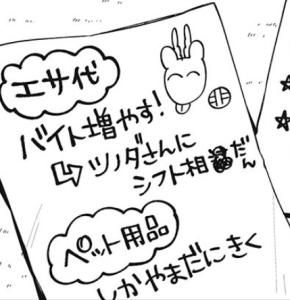 エサ代
バイト増やす!
↳ツノダさんに
シフト相だん
ペット用品
しかやまだにきく